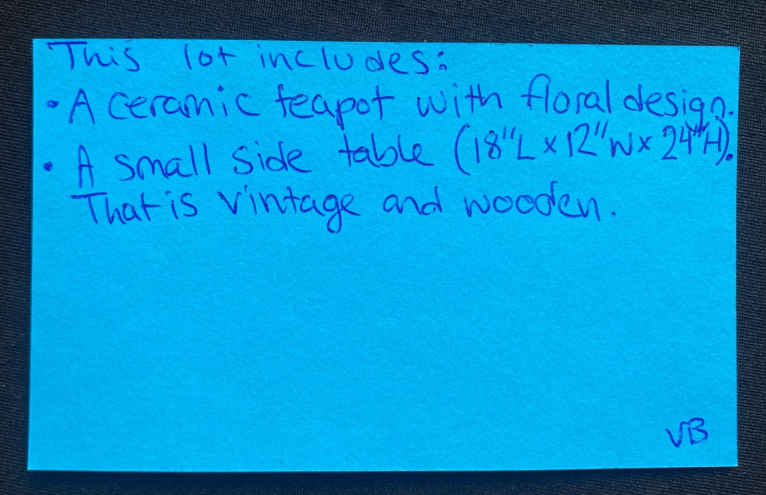 This lot includes:
• A ceramic teapot with floral design.
• A small side table (18"L x 12"W x 24"H).
That is vintage and wooden.
VB